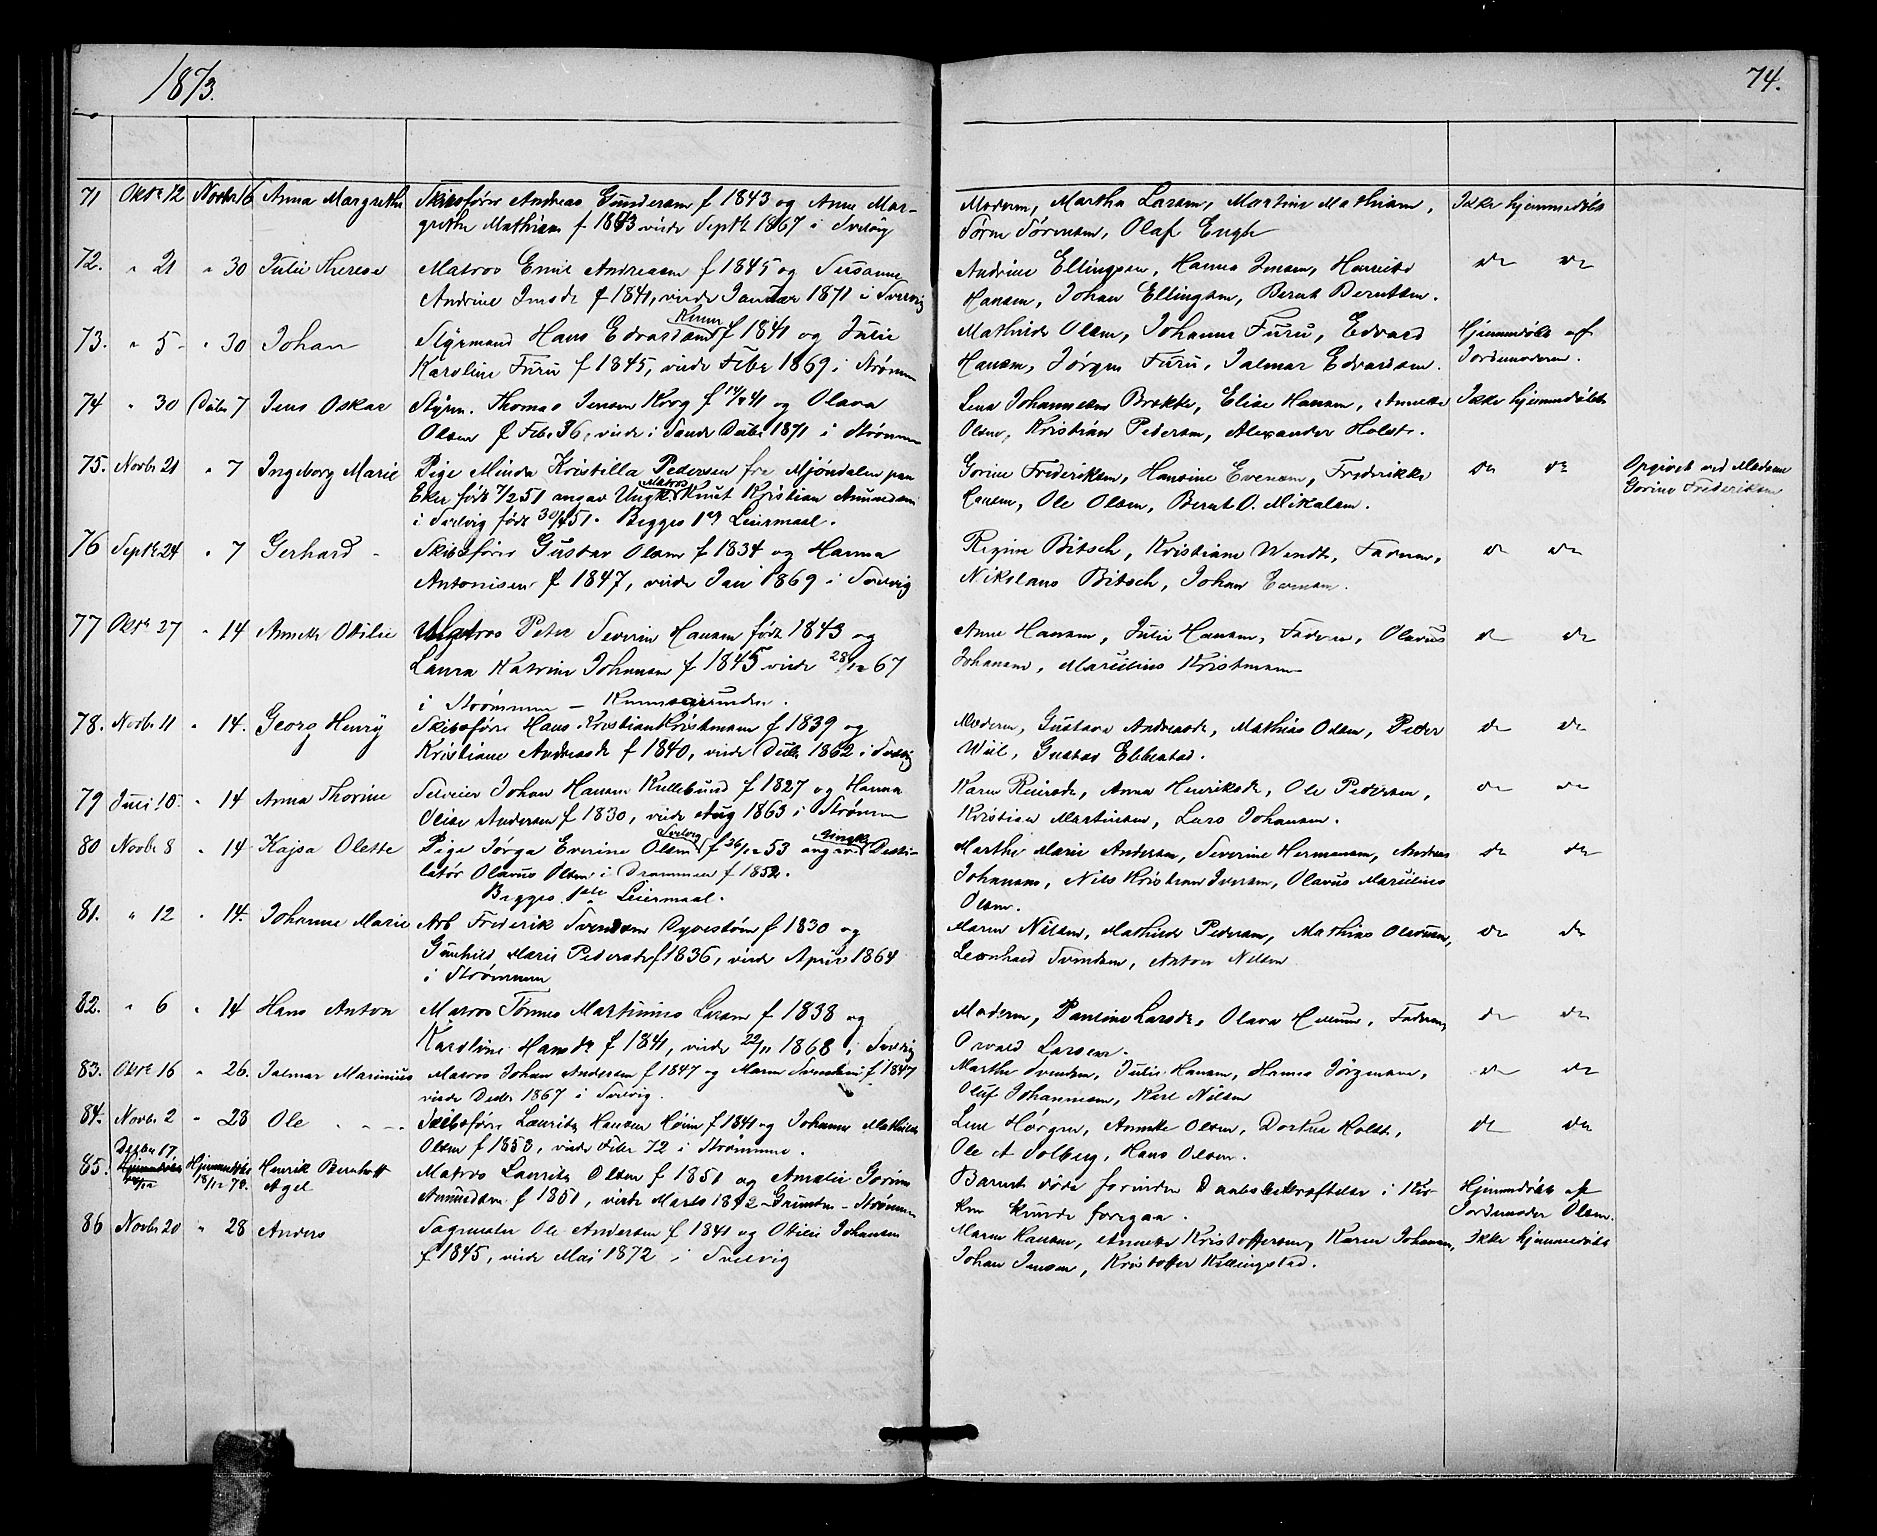 1873.
74.
71 Oktr 12 Novbr 16 Anna Margrethe Skibsfører Andreas Gundersen f 1843 og Anne Mar-
grethe Mathisen f 1843 viede Septbr 1867 i Svelvig
Moderen, Martha Larsen, Martine Mathisen, Ikke hjemmedøbt
Sørine Sørensen, Olaf Engh
72. " 21 " 30 Julie Therese Matros Emil Andreasen f 1845 og Susanne
Andrine Jensdr f 1841, viede Januar 1871 i Svelvig
Andrine Ellingsen, Hanna Jensen, Henriette do do
Hansen, Johan Ellingsen, Bernt Berntsen.
73. " 5 " 30 Johan Styrmand Hans Edvardsen f 1841 og Julie
Karoline Furu f 1845, viede Febr 1869 i Strømm
Mathilde Olsen, Johanne Furu, Edvard Hjemmedøbt af
Hansen, Jørgen Furu, Jalmar Edvardsen. Jordemoderen.
74 " 30 Decbr 7 Jens Oskar Styrm. Thomas Jensen Korg f 14/9 41 og Olava
Olsen f Febr 36, viede i Sande Decbr 1871 i Strømm
Lena Johannesen Brekke, Elise Hansen, Annette Ikke hjemmedøbt
Olsen, Kristian Pedersen, Alexander Holst.
75. Novbr 21 " 7 Ingeborg Marie Pige Minda Kristilla Pedersen fra Mjøndalen paa
Eker født 7/2 51 angav Ungk. Matros Knut Kristian Amundsen
i Svelvig født 30/4 51. Begges 1ste Leiermaal.
Gorine Frederiksen, Hansine Evensen, Frederikke do do
Hansen, Ole Olsen, Bernt O. Mikalsen.
Opgivet ved Moderen
Gorine Frederiksen
76 Septbr 24 " 7 Gerhard Skibsfører Gustav Olsen f 1834 og Hanna
Antonisen f 1847, viede Jan 1869 i Svelvig
Regine Bitsch, Kristiane Wendt, Faderen, do do
Nikolaus Bitsch, Johan Evensen.
77 Oktr 27 " 14 Annette Ottilie Matros Peter Severin Hansen født 1843 og
Laura Katrine Johansen f 1845 viede 28/12 67
i Strømmen –
Anne Hansen, Julie Hansen, Faderen, Olavus do do
Johansen, Marelius Kristensen
78. Novbr 11 " 14. Georg Henry Skibsfører Hans Kristian Kristensen f 1839 og
Kristiane Andreasdr f 1840, viede Decbr 1862 i Svelvig
Moderen, Gustava Andreasdr, Mathias Olsen, Peder do do
Wiel, Gustav Ebbestad.
79 Juli 10 " 14 Anna Thorine Selveier Johan Hansen Kullebund f 1827 og Hanna
Olise Andersen f 1830, viede Aug 1863 i Strømm
Karen Reiersdr, Anna Henriksdr, Ole Pedersen, do do
Kristian Martinsen, Lars Johansen.
80 Novbr 8 " 14 Kajsa Olette Pige Jørga Everine Olsen Svelvig f 26/12 53 angav Ungk. Desti-
latør Olavus Olsen i Drammen f 1852.
Begges 1ste Leiermaal.
Marthe Marie Andersen, Severine Hermansen, Andreas do do
Johansen, Nils Kristian Iversen, Olavus Marelius
Olsen.
81. " 12 " 14. Johanne Marie Arb Frederik Svendsen Dyvestøm f 1830 og
Gunhild Marie Pedersdr f 1836, viede April 1864
i Strømmen
Maren Nilsen, Mathilde Pedersen, Mathias Olausen, do do
Leonhard Svendsen, Anton Nilsen
82. " 6 " 14 Hans Anton Matros Tønnes Martinius Larsen f 1838 og
Karoline Hansdr f 1841, viede 22/11 1868 i Svelvig
Moderen, Pauline Larsdr, Olava Hellum, Faderen, do do
Osvald Larsen.
83. Oktr 16 " 26. Jalmar Marinius Matros Johan Andersen f 1847 og Maren Svendsen f 1847
viede Decbr 1867 i Svelvig.
Marthe Svendsen, Julie Hansen, Hanna Jørgensen, do do
Oluf Johannesen, Karl Nilsen
84. Novbr 2 " 28 Ole Skibsfører Lauritz Hansen Høien f 1841 og Johanne Mathilde
Olsen f 1853, viede Febr 72 i Strømmen.
Lene Hørgen, Annette Olsen, Dorthea Holst, do do
Ole A Solberg, Hans Olsen.
85. Decbr 17. Hjemmedøbt 18/12 73. Henrik Bernhoft
Agel
Matros Lauritz Olsen f 1851 og Amalie Gorine
Amundsen f 1851, viede Marts 1872 – Grunden – Strømm
Barnet døde forinden Daabsbekræftelse i Kir- Hjemmedøbt af
ken kunde foregaa. Jordemoder Olsen.
86 Novbr 20 " 28 Anders Sagmester Ole Andersen f 1841 og Otilie Johansen
f 1845, viede Mai 1872 i Svelvig
Maren Hansen, Annette Kristoffersen, Karen Johansen, Ikke hjemmedøbt
Johan Jensen, Kristoffer Killingstad.